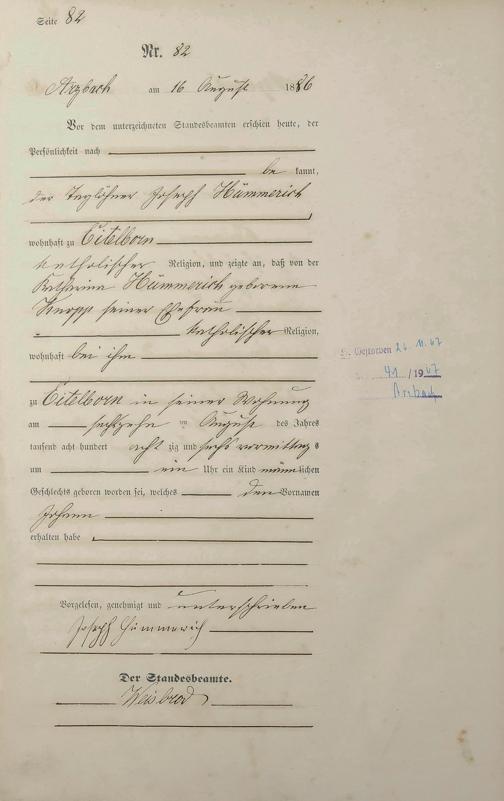 Seite 82
Nr. 82
Arzbach am 16 August 1886
Vor dem unterzeichneten Standesbeamten erschien heute, der
Persönlichkeit nach
be kannt,
der Taglöhner Joseph Hümmerich
wohnhaft zu Eitelborn
katholischer Religion, und zeigte an, daß von der
Katharina Hümmerich geborene
Knopp seiner Ehefrau
katholischer Religion,
wohnhaft bei ihm
zu Eitelborn in seiner Wohnung
am sechzehn ten August des Jahres
tausend acht hundert acht zig und sechs vormittags
um ein Uhr ein Kind männlichen
Geschlechts geboren worden sei, welches den Vornamen
Johann
erhalten habe
Vorgelesen, genehmigt und unterschrieben
Joseph Hümmerich
Der Standesbeamte.
Weisbrod
Gestorben 26.11.67
41 /1967
Arzbach